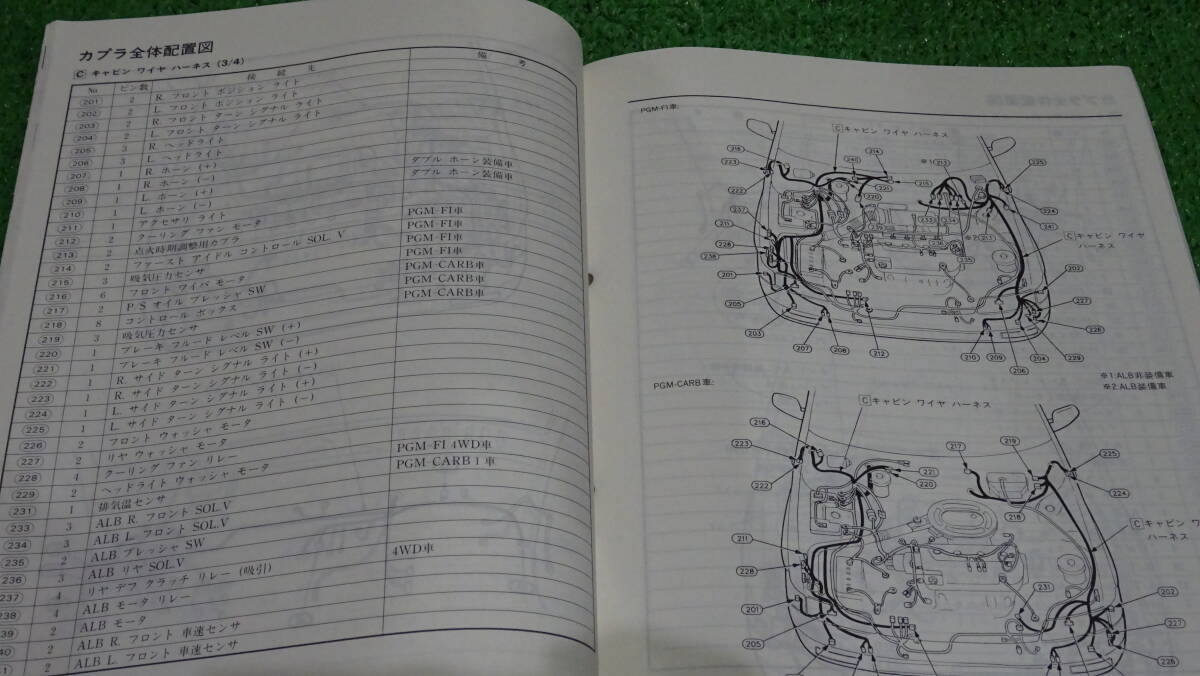 カプラ全体配置図
C キャビン ワイヤ ハーネス (3/4)
No. ピン数 接続先 備考
201 2 R. フロント ポジション ライト
202 2 L. フロント ポジション ライト
203 2 R. フロント ターン シグナル ライト
204 2 L. フロント ターン シグナル ライト
205 3 R. ヘッドライト
206 3 L. ヘッドライト
207 1 R. ホーン (+)
208 1 R. ホーン (−)
209 1 L. ホーン (+)
210 1 L. ホーン (−)
211 1 アクセサリ ライト
212 2 クーリング ファン モータ
213 2 点火時期調整用カプラ
214 2 ファースト アイドル コントロール SOL. V
215 3 吸気圧力センサ
216 6 フロント ワイパ モータ
217 2 P.S オイル プレッシャ SW
218 8 コントロール ボックス
219 3 吸気圧力センサ
220 1 ブレーキ フルード レベル SW (+)
221 1 ブレーキ フルード レベル SW (−)
222 1 R. サイド ターン シグナル ライト (+)
223 1 R. サイド ターン シグナル ライト (−)
224 1 L. サイド ターン シグナル ライト (+)
225 1 L. サイド ターン シグナル ライト (−)
226 2 フロント ウォッシャ モータ
227 2 リヤ ウォッシャ モータ
228 4 クーリング ファン リレー
229 2 ヘッドライト ウォッシャ モータ
231 1 排気温センサ
233 3 ALB R. フロント SOL.V
234 3 ALB L. フロント SOL.V
235 2 ALB プレッシャ SW
236 3 ALB リヤ SOL.V
237 4 リヤ デフ クラッチ リレー (吸引)
238 4 ALB モータ リレー
39 2 ALB モータ
40 2 ALB R. フロント 車速センサ
41 2 ALB L. フロント 車速センサ
ダブル ホーン装備車
ダブル ホーン装備車
PGM-FI車
PGM-FI車
PGM-FI車
PGM-FI車
PGM-CARB車
PGM-CARB車
PGM-CARB車
PGM-FI 4WD車
PGM-CARB 1車
4WD車
PGM-FI車:
C キャビン ワイヤ ハーネス
216 240 214 ※1 213 225
223 221 215
222 220 224
237 233 234 241
211 239 236 ※2 213
C キャビン ワイヤ ハーネス
228
238 235
201 202
205 227
203 228
207 208 212 210 209 204 229
206
※1:ALB非装備車
※2:ALB装備車
PGM-CARB車:
C キャビン ワイヤ ハーネス
216
223 217 219 225
221
222 220 218 224
C キャビン ワ
ハーネス
211
228
231 202
201
205 227
226